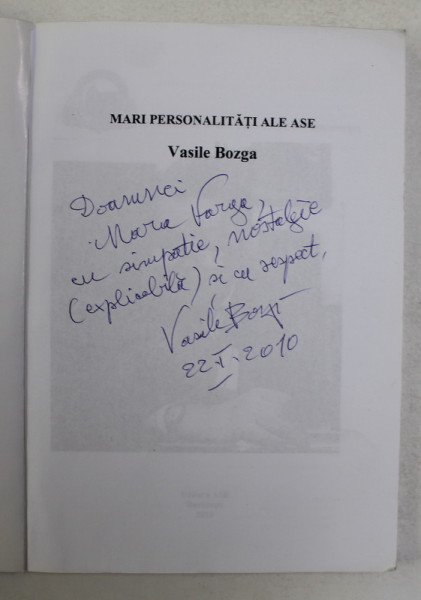 MARI PERSONALITĂȚI ALE ASE
Vasile Bozga
Doamnei
Mara Varga,
cu simpatie, nostalgie
(explicabilă) și cu respect,
Vasile Bozga
22.V.2010